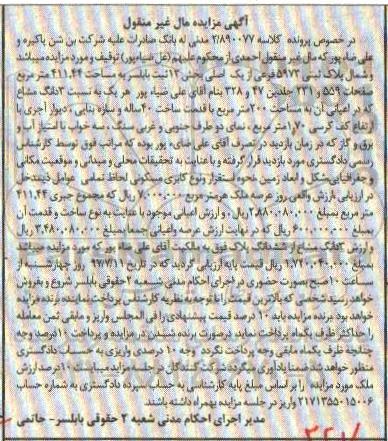 آگهی مزایده مال غیر منقول
در خصوص پرونده کلاسه ۲/۸۹۰۰۷۷ مدنی له بانک صادرات علیه شرکت بن شن پاکیزه و
علی ضیاء پور که مال غیر منقول احمدی از محکوم علیهم (علی ضیاءپور) توقیف و مورد مزایده میباشد
و شمال پلاک ثبتی ۵۹۷۳ فرعی از یک اصلی بخش ۱۲ ثبت بابلسر به مساحت ۴۱۱.۴۴ متر مربع
صفحات ۵۵۹ و ۲۲۱ جلدین ۴۷ و ۳۲۸ بنام آقای علی ضیاء پور هر یک به نسبت ۳ دانگ مشاع
که در اعیانی آن به مساحت ۲۰۰ متر مربع با قدمت ساخت ۴۰ ساله و سازه بنایی - دیوار آجری با
ارتفاع کف کرسی ۷۰/ متر مربع نمای دو طرف جنوبی و غربی سنگ، سه خواب با امتیاز آب و
برق و گاز که در زمان بازدید در تصرف آقای علی ضیاء پور بوده که مراتب فوق توسط کارشناس
رسمی دادگستری مورد بازدید قرار گرفته و با عنایت به تحقیقات محلی و میدانی و موقعیت مکانی
درجه اقبانی شکل و ابعاد زمین نحوه استقرار ونوع کاربری مسکونی لحاظ تمامی عوامل ذیمدخل
در ارزیابی ارزش واقعی روز عرصه ملک هر متر مربع ریال که مجموع جبری ۴۱۱.۴۴
متر مربع بمبلغ ۲.۸۸۰.۰۸۰.۰۰۰ ریال و ارزش اعیانی موجود با عنایت به نوع ساخت و قدمت آن
بمبلغ ۶۰۰.۰۰۰.۰۰۰ ریال که در نهایت ارزش عرصه واعیانی جمعا بمبلغ ۳.۴۸۰.۰۸۰.۰۰۰ ریال
و ارزش ۳ دانگ مشاع از ششدانگ پلاک فوق به مالکیت آقای علی ضیاء پور که مورد مزایده میباشد
بمبلغ ۱.۷۴۰.۰۴۰.۰۰۰ ریال قیمت پایه ارزیابی گردید که در تاریخ ۹۷/۷/۱۱ روز چهارشنبه از
ساعت ۱۰ صبح بصورت حضوری در اجرای احکام مدنی شعبه ۲ حقوقی بابلسر شروع و بفروش
خواهد رسید شخصی که بالاترین قیمت را با توجه به نظریه کارشناس پرداخت نماید برنده مزایده
خواهد بود برنده مزایده باید ۱۰ درصد قیمت پیشنهادی را فی المجلس واریز و مابقی ثمن معامله
را حداکثر ظرف یکماه پرداخت نماید درصورت برنده شدن در مزایده و پرداخت ۱۰ درصد وجه
چنانچه ظرف یکماه مابقی وجه پرداخت نگردد وجه ۱۰ درصدی واریزی به حساب دادگستری
منظور خواهد شد ضمنا یادآوری میگردد شرکت کنندگان در جلسه مزایده میبایست ۱۰ درصد ارزش
ملک مورد مزایده را بر اساس مبلغ پایه کارشناسی به حساب سپرده دادگستری به شماره حساب
۲۱۷۱۳۵۵۰۱۵۰۰۶ واریز در جلسه مزایده بهمراه داشته باشند
مدیر اجرای احکام مدنی شعبه ۲ حقوقی بابلسر - حاتمی